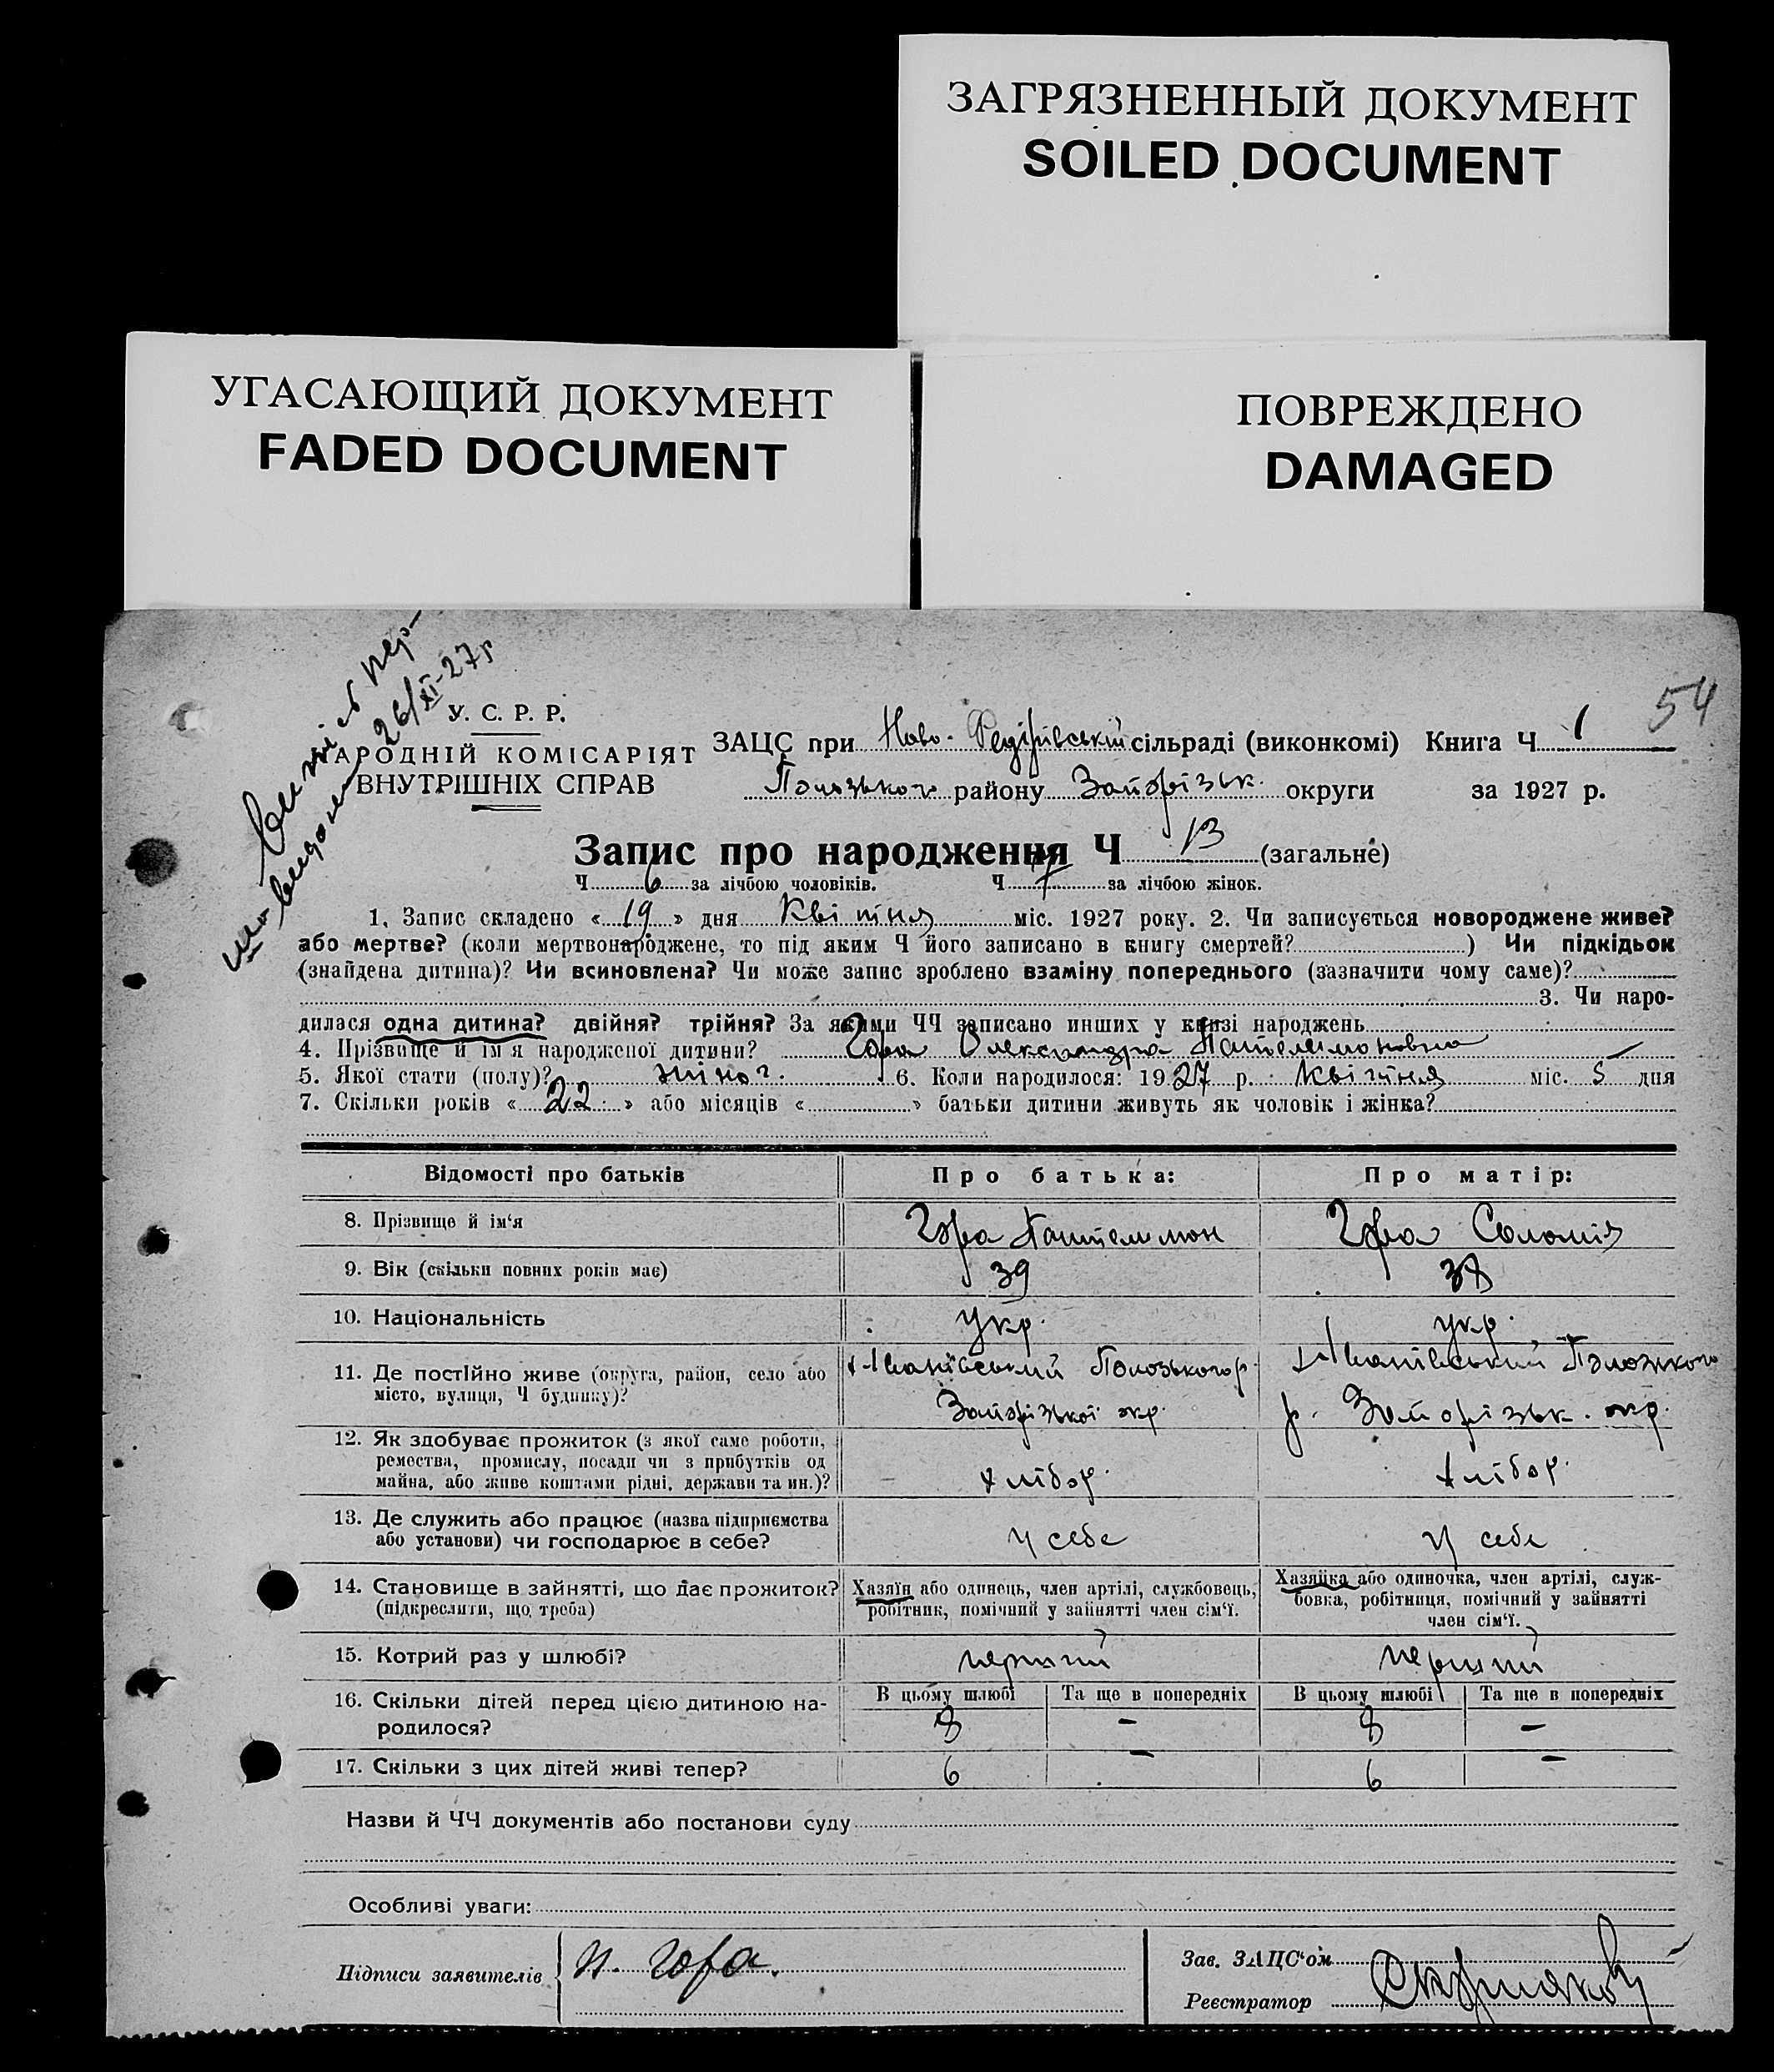 ЗАГРЯЗНЕННЫЙ ДОКУМЕНТ
SOILED DOCUMENT
УГАСАЮЩИЙ ДОКУМЕНТ
FADED DOCUMENT
ПОВРЕЖДЕНО
DAMAGED
26/XI-27р
54
У. С. Р. Р.
НАРОДНІЙ КОМІСАРІЯТ
ВНУТРІШНІХ СПРАВ
ЗАЦС при Ново-Федорівській сільраді (виконкомі) Книга Ч 1
Пологського району Запоріжськ. округи за 1927 р.
Запис про народження Ч 13 (загальне)
Ч 6 за лічбою чоловіків. Ч 7 за лічбою жінок.
1. Запис складено « 19 » дня Квітня міс. 1927 року. 2. Чи записується новороджене живе?
або мертве? (коли мертвонароджене, то під яким Ч його записано в книгу смертей? ) Чи підкідьок
(знайдена дитина)? Чи всиновлена? Чи може запис зроблено взаміну попереднього (зазначити чому саме)?
3. Чи наро-
дилася одна дитина? двійня? трійня? За якими ЧЧ записано инших у книзі народжень
4. Прізвище й ім'я народженої дитини? Гора Олександра Пантелимоновна
5. Якої стати (полу)? жіноч. 6. Коли народилося: 1927 р. Квітня міс. 5 дня
7. Скільки років « 22 » або місяців « » батьки дитини живуть як чоловік і жінка?
Відомості про батьків Про батька: Про матір:
8. Прізвище й ім'я Гора Пантелимон Гора Соломія
9. Вік (скільки повних років має) 39 38
10. Національність укр. укр.
11. Де постійно живе (округа, район, село або
місто, вулиця, Ч будинку)?
х Іванівський Пологського р. Запорізької окр.
х Іванівський Пологського р. Запорізьк. окр.
12. Як здобуває прожиток (з якої саме роботи,
ремества, промислу, посади чи з прибутків од
майна, або живе коштами рідні, держави та ин.)?
хлібор. хлібор.
13. Де служить або працює (назва підприємства
або установи) чи господарює в себе?
у себе у себе
14. Становище в зайнятті, що дає прожиток?
(підкреслити, що треба)
Хазяїн або одинець, член артілі, службовець,
робітник, помічний у зайнятті член сім'ї.
Хазяйка або одиночка, член артілі, служ-
бовка, робітниця, помічний у зайнятті
член сім'ї.
15. Котрий раз у шлюбі? перший перший
16. Скільки дітей перед цією дитиною на-
родилося?
В цьому шлюбі Та ще в попередніх В цьому шлюбі Та ще в попередніх
8 - 8 -
17. Скільки з цих дітей живі тепер? 6 - 6 -
Назви й ЧЧ документів або постанови суду
Особливі уваги:
Підписи заявителів П. Гора.
Зав. ЗАЦС'ом
Реєстратор